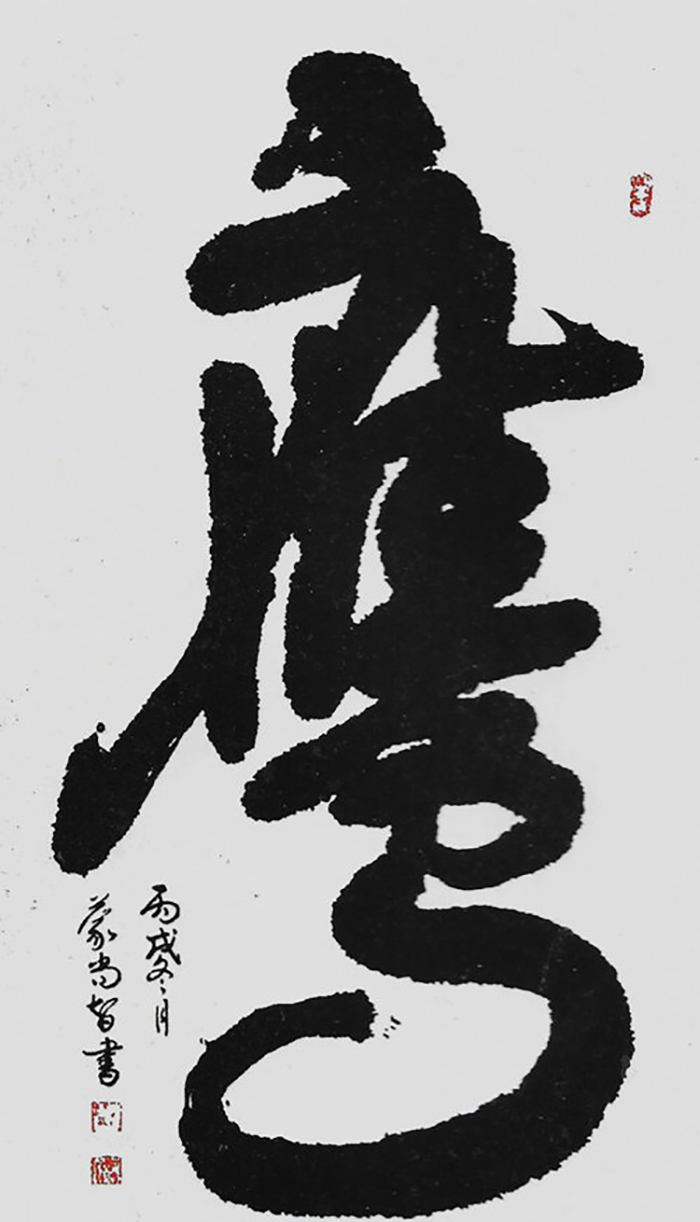 鹰
丙戌冬月
蒙尚智书